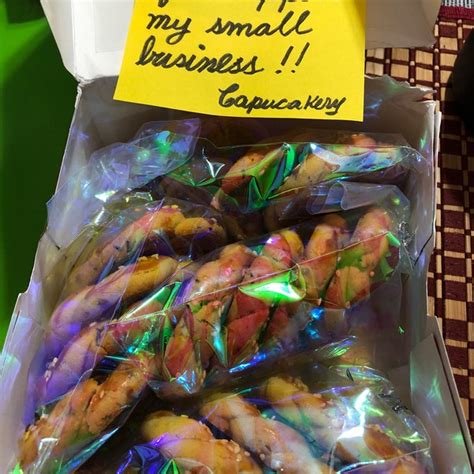 my small
business !!
Capucakery